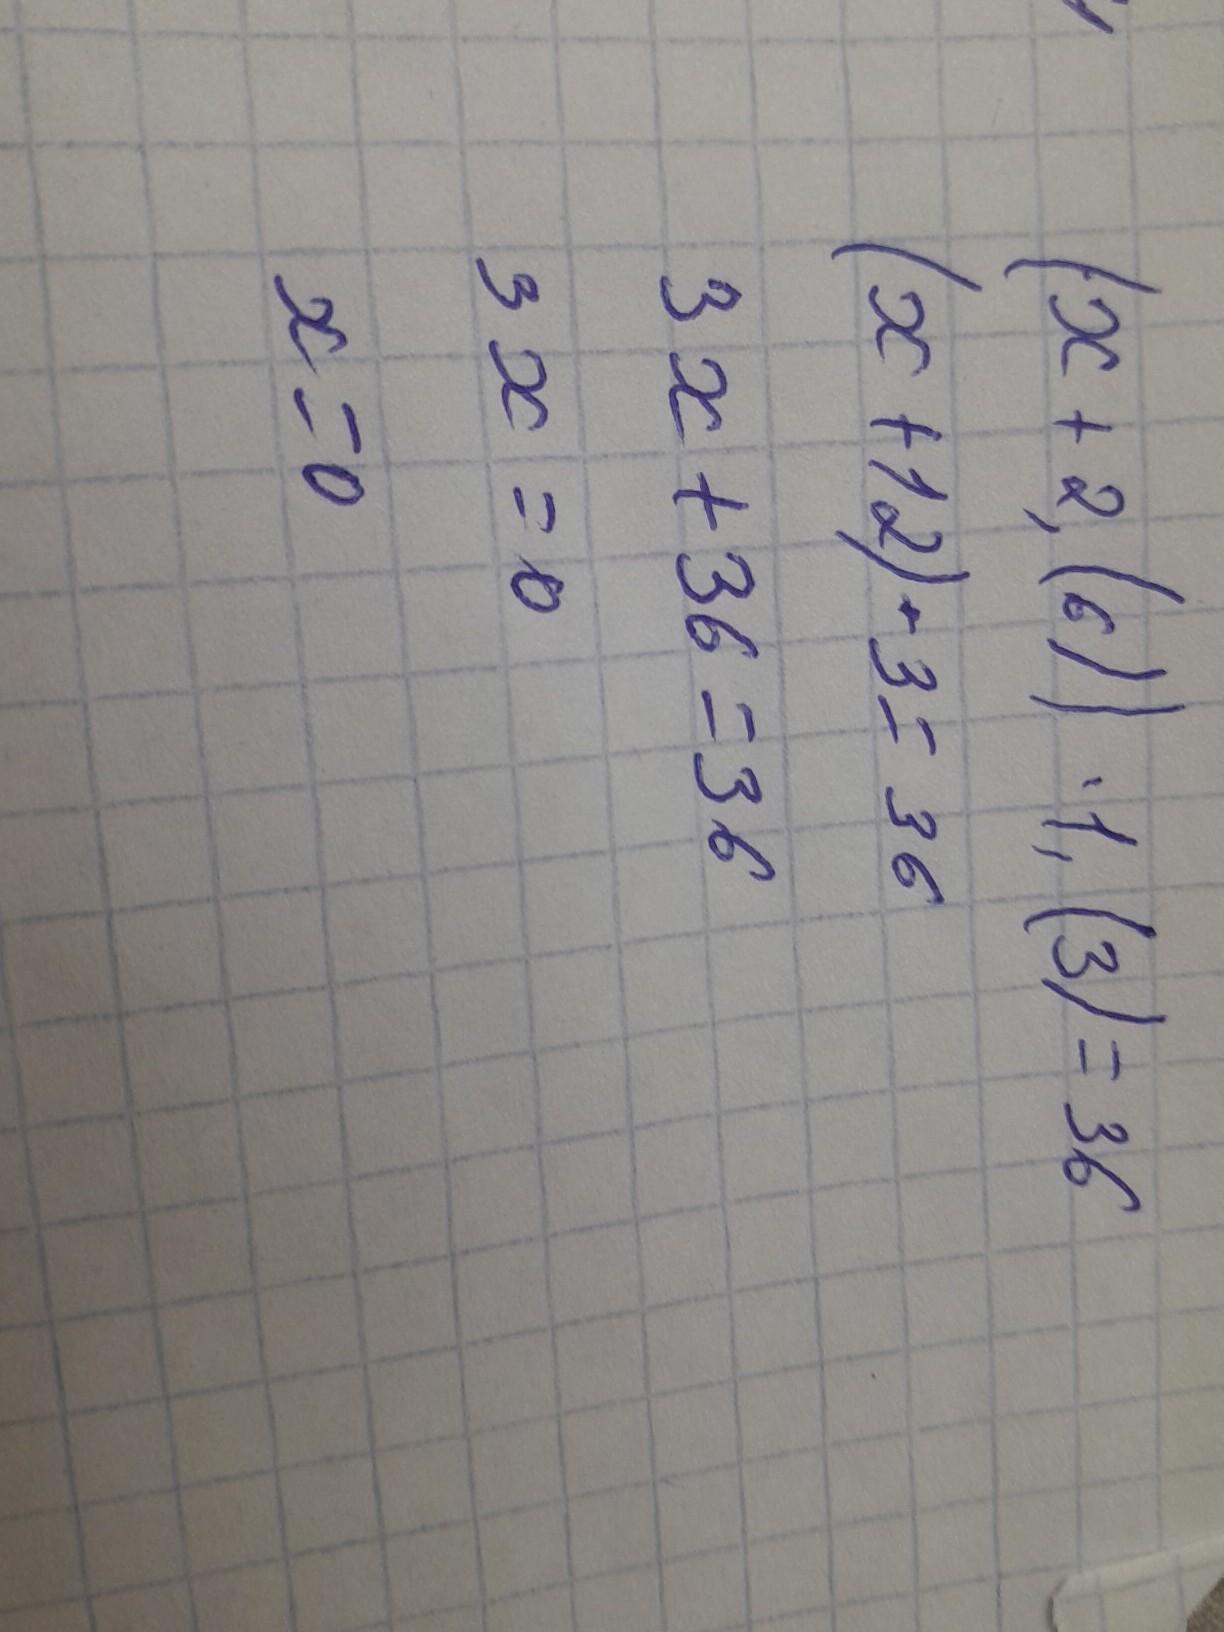 (x + 2,(6)) · 1,(3) = 36
(x + 12) · 3 = 36
3x + 36 = 36
3x = 0
x = 0